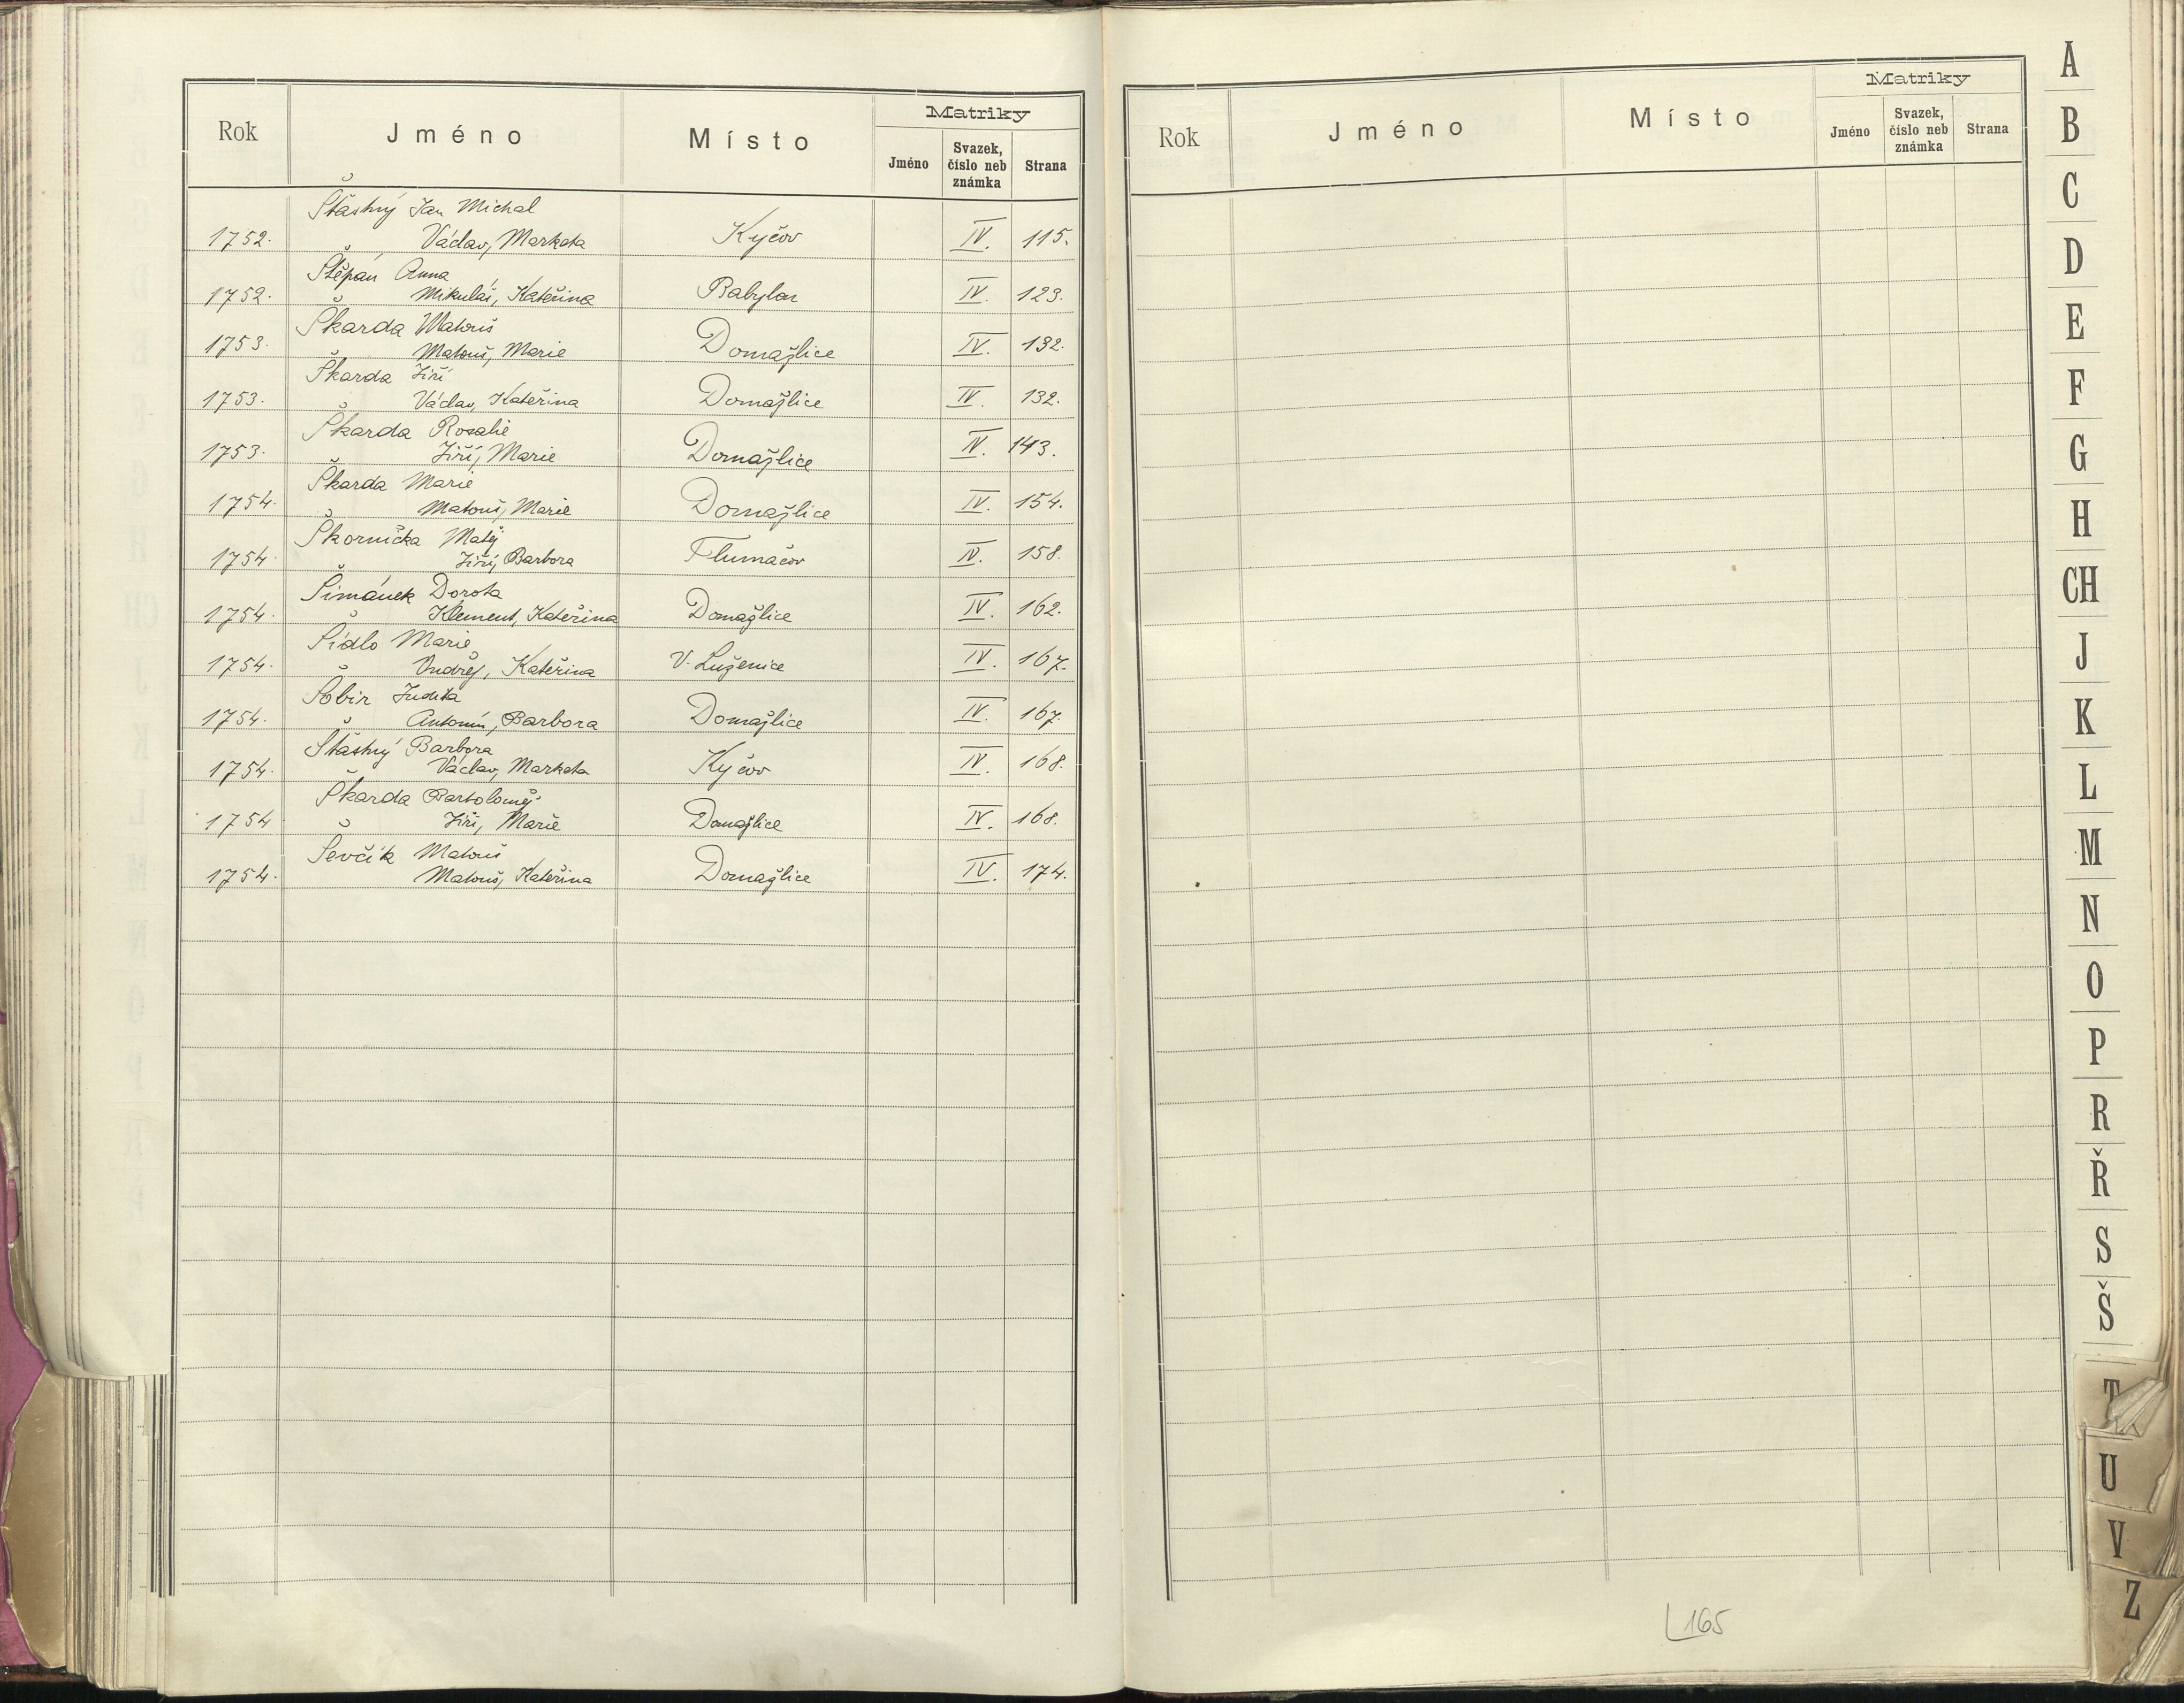 Rok Jméno Místo Matriky
Jméno Svazek, číslo neb známka Strana
Šťastný Jan Michal
1752. Václav, Marketa Kyčov IV. 115.
Štěpán Anna
1752. Mikuláš, Kateřina Babylon IV. 123.
Škarda Matouš
1753. Matouš, Marie Domažlice IV. 132.
Škarda Jiří
1753. Václav, Kateřina Domažlice IV. 132.
Škarda Rosalie
1753. Jiří, Marie Domažlice IV. 143.
Škarda Marie
1754. Matouš, Marie Domažlice IV. 154.
Škornička Matěj
1754. Jiří, Barbora Tlumačov IV. 158.
Šimánek Dorota
1754. Klement, Kateřina Domažlice IV. 162.
Šídlo Marie
1754. Ondřej, Kateřina V. Luženice IV. 167.
Judita
1754. Antonín, Barbora Domažlice IV. 167.
Šťastný Barbora
1754. Václav, Marketa Kyčov IV. 168.
Škarda Bartoloměj
1754 Jiří, Marie Domažlice IV. 168.
Ševčík Matouš
1754. Matouš, Kateřina Domažlice IV. 174.
Rok Jméno Místo Matriky
Jméno Svazek, číslo neb známka Strana
165
A
B
C
D
E
F
G
H
CH
J
K
L
M
N
O
P
R
Ř
S
Š
T
U
V
Z